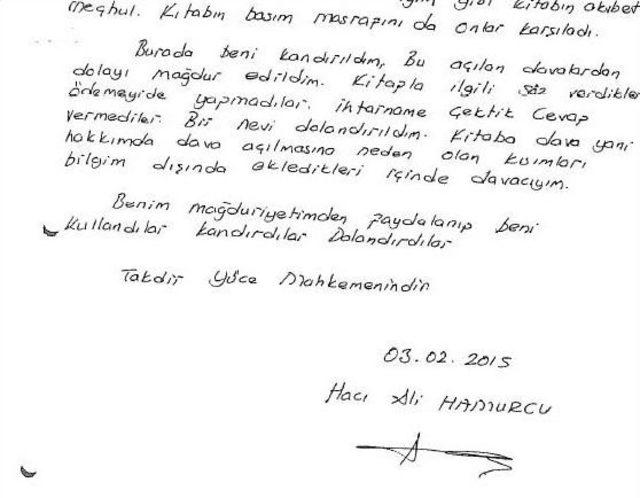 gibi kitabın akıbet
meçhul. Kitabın basım masrapını da onlar karşıladı.
Burada beni kandırıldım, Bu açılan davalardan
dolayı mağdur edildim. Kitapla ilgili söz verdikler
ödemeyide yapmadılar. ihtarname Çektik Cevap
vermediler. Bir nevi dolandırıldım. Kitaba dava yani
hakkımda dava açılmasına neden olan kısımları
bilgim dışında ekledikleri içinde davacıyım.
Benim mağduriyetimden faydalanıp beni
Kullandılar kandırdılar Dolandırdılar
Takdir Yüce Mahkemenindir
03.02.2015
Hacı Ali HAMURCU